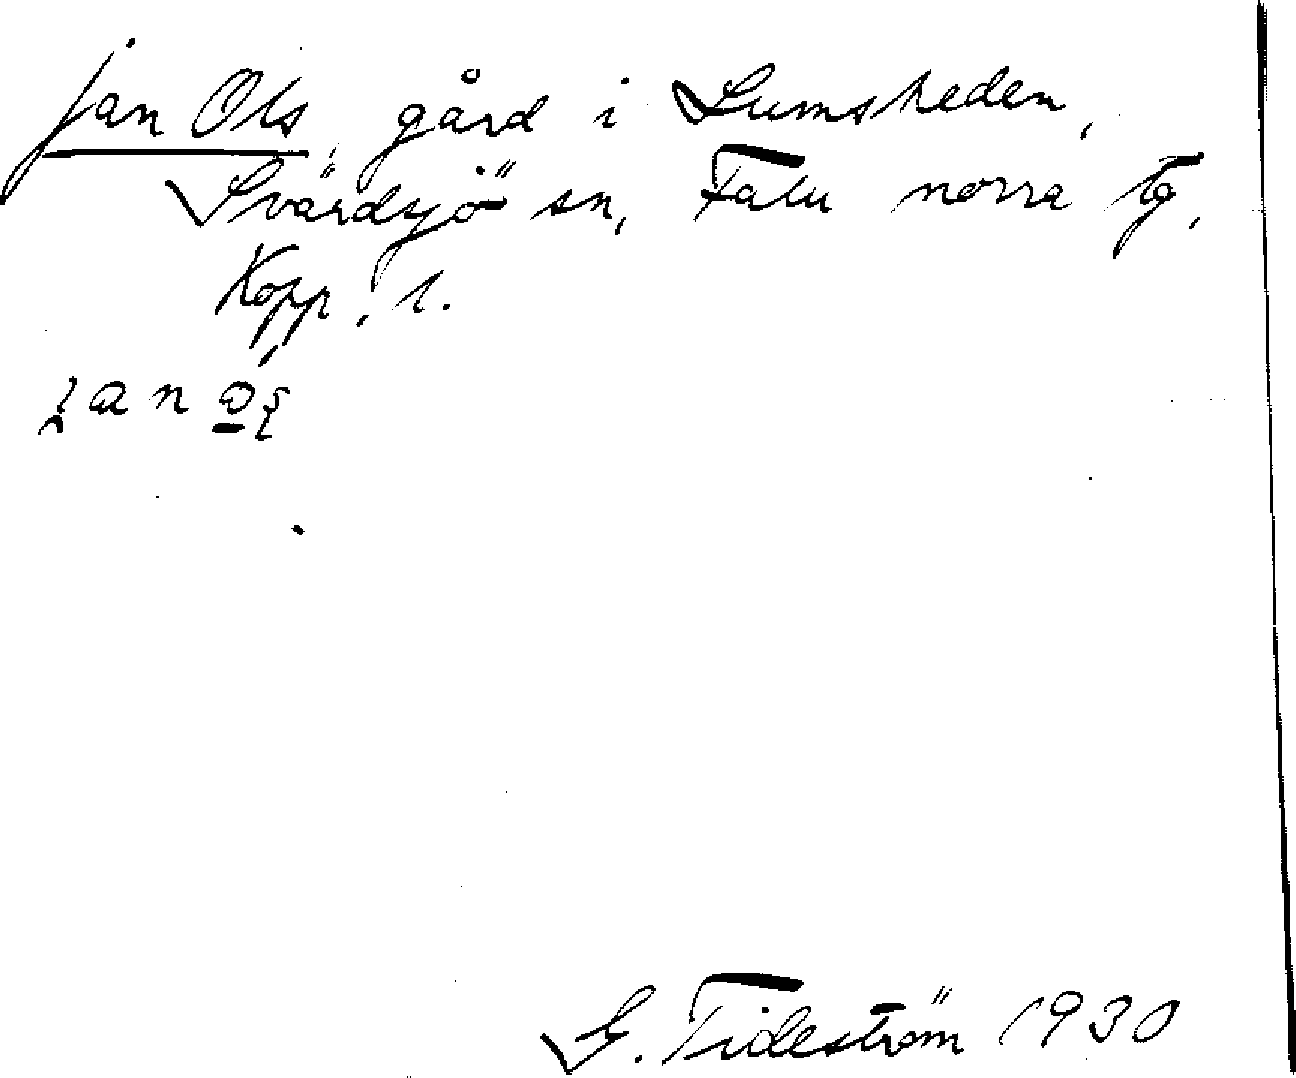 Jan Ols, gård i Lumsheden,
Svärdsjö sn, Falu norra tg,
Kopp. l.
G. Tideström 1930